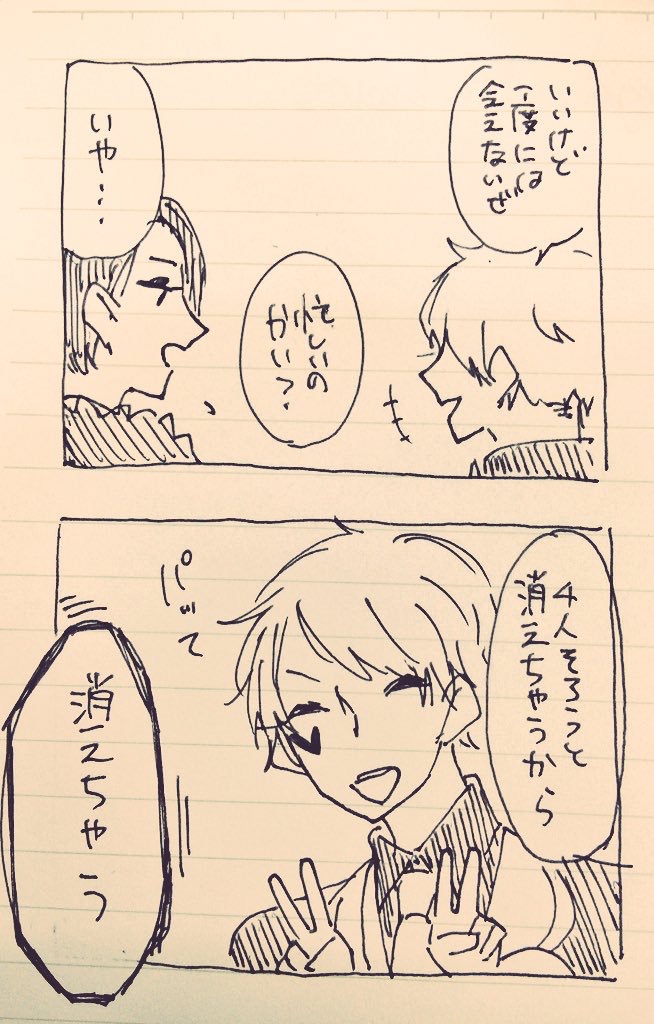 いいけど
一度には
会えないぜ
忙しいの
かい?
いや…
4人そろうと
消えちゃうから
パッて
消えちゃう